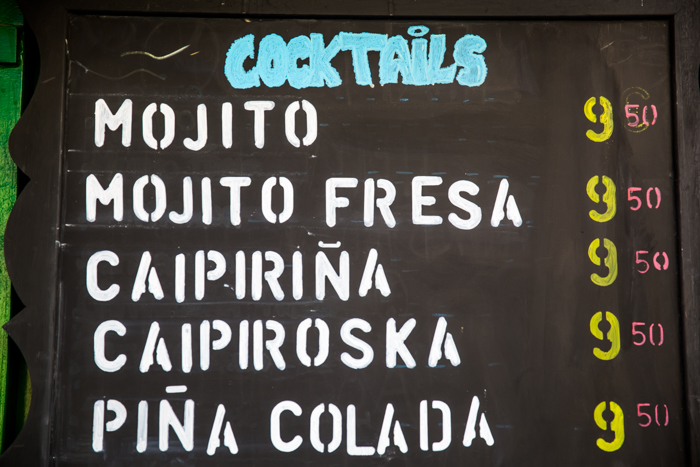 COCKTAiLS
MOJITO 9 50
MOJITO FRESA 9 50
CAIPIRIÑA 9 50
CAIPIROSKA 9 50
PIÑA COLADA 9 50